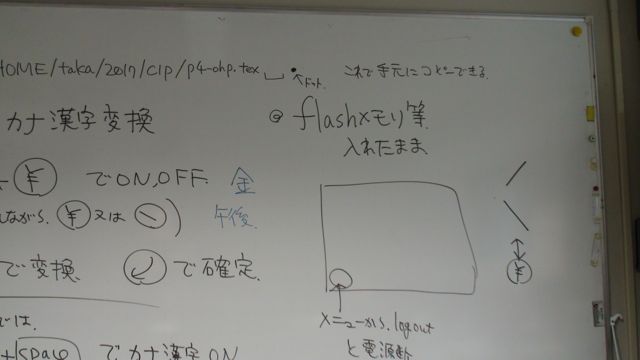 HOME/taka/2017/CIP/p4-ohp.tex␣.
ドット
これで手元にコピーできる
カナ漢字変換
@ flashメモリ等
入れたまま
¥ でON,OFF. 金
ながら. ¥ 又は \ ) 午後
で変換 ↙ で確定.
/
\
↕
¥
メニューから. logout
と電源断
では.
+space でカナ漢字ON